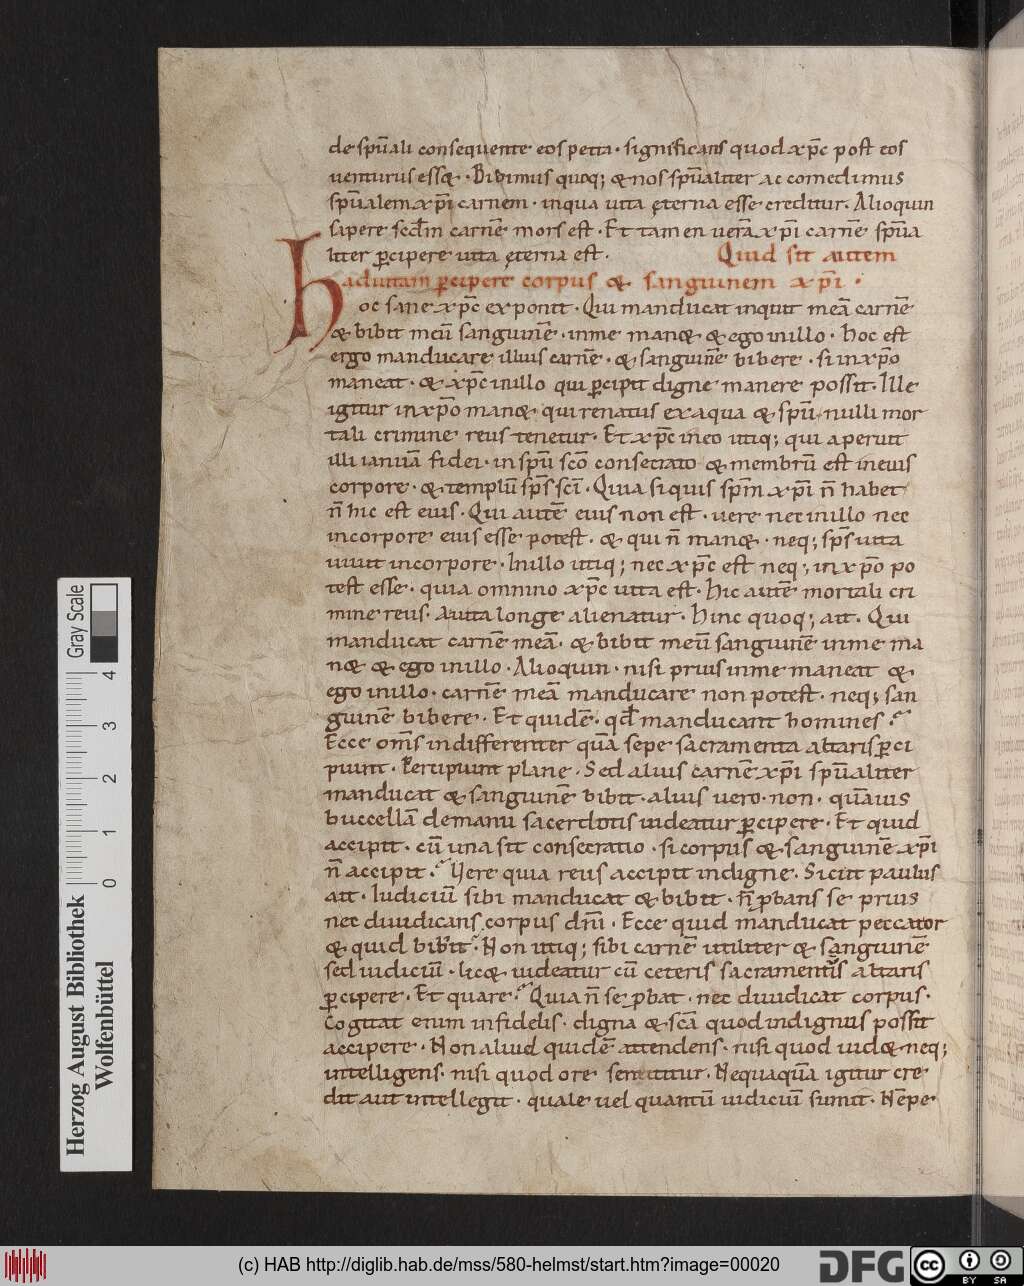 de sp̅uali consequente eos petra · significans quod xp̅c post eos
uenturus esset · Bibimus quoq; & nos sp̅ualiter ac comedimus
sp̅ualem xp̅i carnem · in qua uita ęterna esse creditur. Alioquin
sapere scd̅m carnē mors est · Et tamen uerā xp̅i carnē sp̅ua
liter p̱cipere uita ęterna est · Quid sit autem
ad uitam p̱cipere corpus & sanguinem xp̅i ·
Hoc sane xp̅c exponit · Qui manducat inquit meā carnē
& bibit meū sanguinē · in me man& · & ego in illo · hoc est
ergo manducare illius carnē · & sanguinē bibere · si in xp̅o
maneat · & xp̅c in illo qui p̱cipit digne manere possit · Ille
igitur in xp̅o man& · qui renatus ex aqua & sp̅u nulli mor
tali crimine reus tenetur · Et xp̅c in eo utiq; qui aperuit
illi ianuā fidei · in sp̅u sc̅o consecrato & membrū est in eius
corpore · & templū sp̅s sc̅i · Quia si quis sp̅m xp̅i n̅ habet
n̅ hic est eius · Qui autē eius non est · uere nec in illo nec
in corpore eius esse potest · & qui n̅ man& · neq; sp̅s uita
uiuit in corpore · In illo utiq; nec xp̅c est neq; in xp̅o po
test esse · quia omnino xp̅c uita est · hic autē mortali cri
mine reus · a uita longe alienatur · hinc quoq; ait · Qui
manducat carnē meā · & bibit meū sanguinē in me ma
n& & ego in illo · Alioquin · nisi prius in me maneat &
ego in illo · carnē meā manducare non potest · neq; san
guinē bibere · Et quidē · qd̅ manducant homines ·
Ecce om̅s indifferenter quā sepe sacramenta altaris p̱ci
piunt · Percipiunt plane · Sed alius carnē xp̅i sp̅ualiter
manducat & sanguinē bibit · alius uero · non · quāuis
buccellā de manu sacerdotis uideatur p̱cipere · Et quid
accipit · cū una sit consecratio · si corpus & sanguinē xp̅i
n̅ accipit · Vere quia reus accipit indigne · Sicut paulus
ait · Iudiciū sibi manducat & bibit · n̅ p̱bans se prius
nec diiudicans corpus dn̅i · Ecce quid manducat peccator
& quid bibit · Non utiq; sibi carnē utiliter & sanguinē
sed iudiciū · lic& · uideatur cū ceteris sacramentis altaris
p̱cipere · Et quare · Quia n̅ se p̱bat · nec diiudicat corpus ·
Cogitat enim infidelis · digna & sc̅a quod indignus possit
accipere · Non aliud quidē attendens · nisi quod uid& neq;
intelligens · nisi quod ore sentitur · Nequaquā igitur cre
dit aut intellegit · quale uel quantū iudiciū sumit · Nēpe
Gray Scale
4
3
2
1
0
Herzog August Bibliothek
Wolfenbüttel
(c) HAB http://diglib.hab.de/mss/580-helmst/start.htm?image=00020
DFG
cc
BY SA